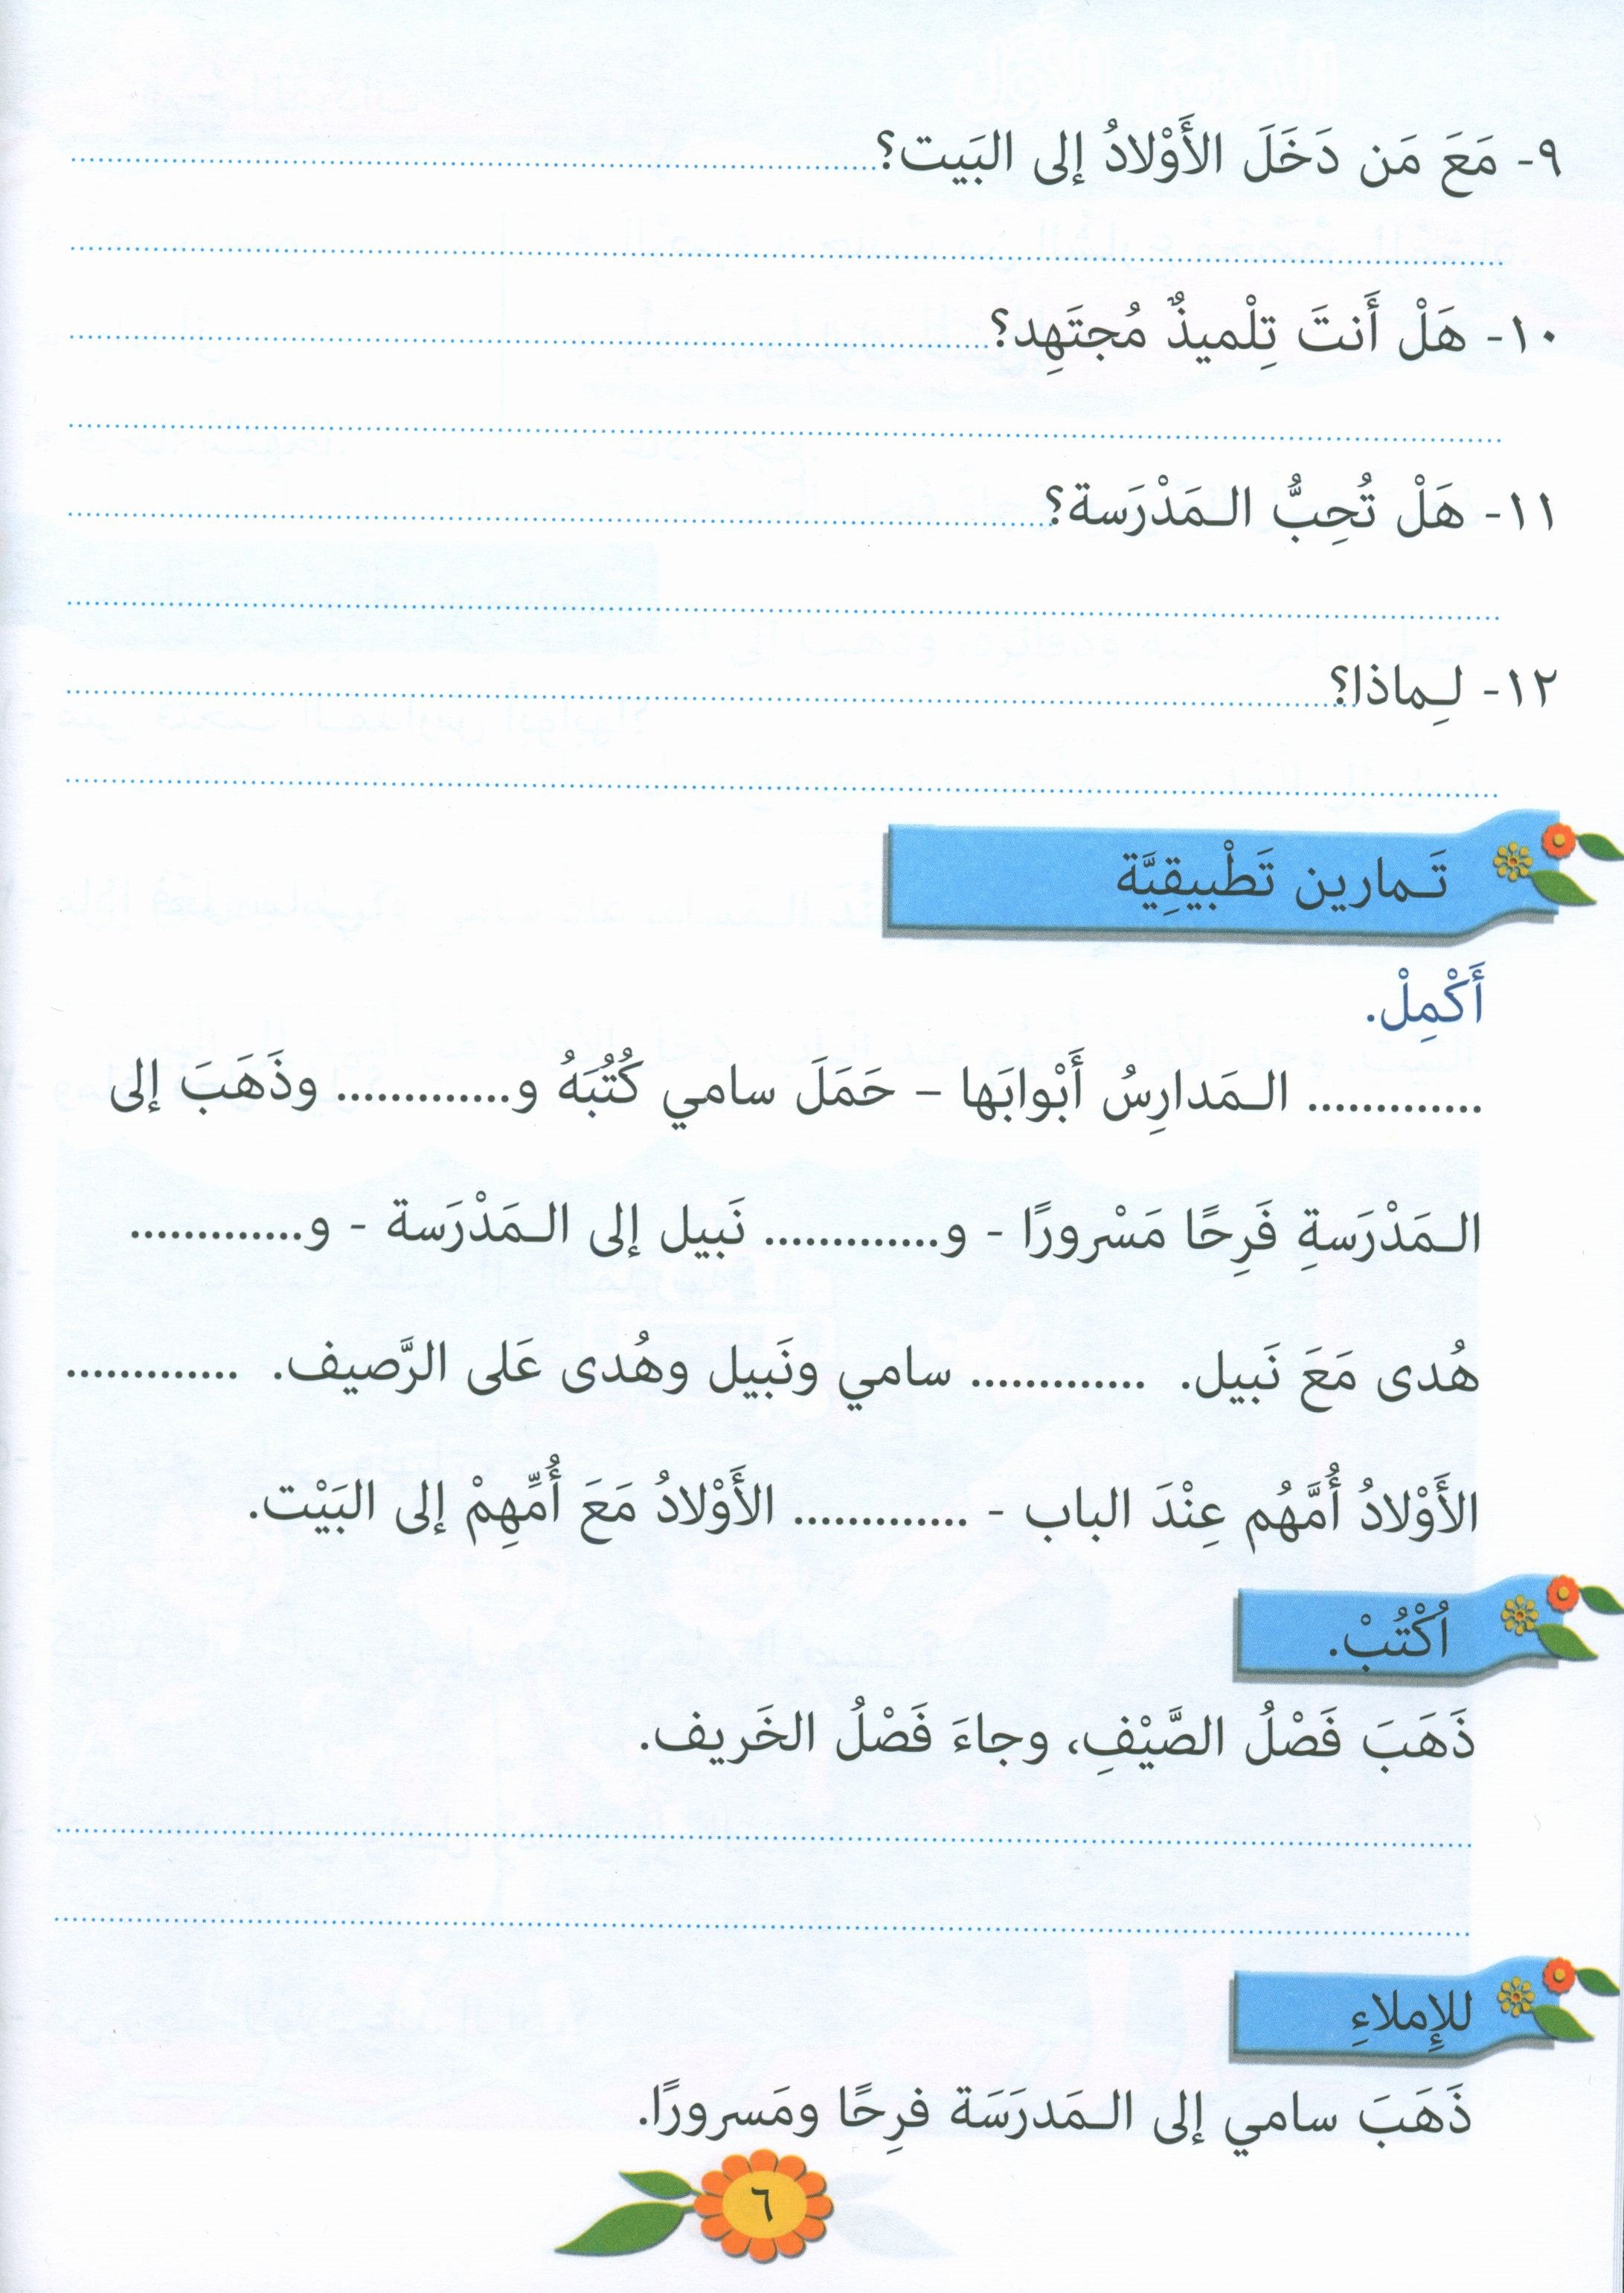 ٩- مَعَ مَن دَخَلَ الأَوْلادُ إلى البَيت؟
١٠- هَلْ أَنتَ تِلْميذٌ مُجتَهِد؟
١١- هَلْ تُحِبُّ الـمَدْرَسة؟
١٢- لِـماذا؟
تَـمارين تَطْبيقِيَّة
أَكْمِلْ.
............. الـمَدارِسُ أَبْوابَها – حَمَلَ سامي كُتُبَهُ و............. وذَهَبَ إلى
الـمَدْرَسةِ فَرِحًا مَسْرورًا - و............. نَبيل إلى الـمَدْرَسة - و.............
هُدى مَعَ نَبيل. ............. سامي ونَبيل وهُدى عَلى الرَّصيف. .............
الأَوْلادُ أُمَّهُم عِنْدَ الباب - ............. الأَوْلادُ مَعَ أُمِّهِمْ إلى البَيْت.
اُكْتُبْ.
ذَهَبَ فَصْلُ الصَّيْفِ، وجاءَ فَصْلُ الخَريف.
للإِملاءِ
ذَهَبَ سامي إلى الـمَدرَسَة فرِحًا ومَسرورًا.
٦